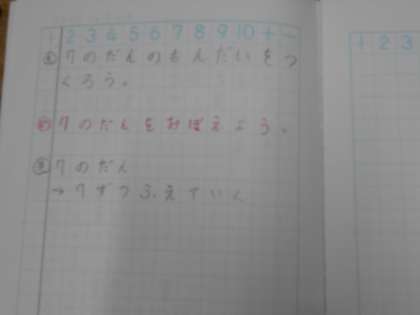 1 2 3 4 5 6 7 8 9 10 + -
7のだんのもんだいをつ
くろう。
め 7のだんをおぼえよう。
7のだん
→7ずつふえていく
1 2 3